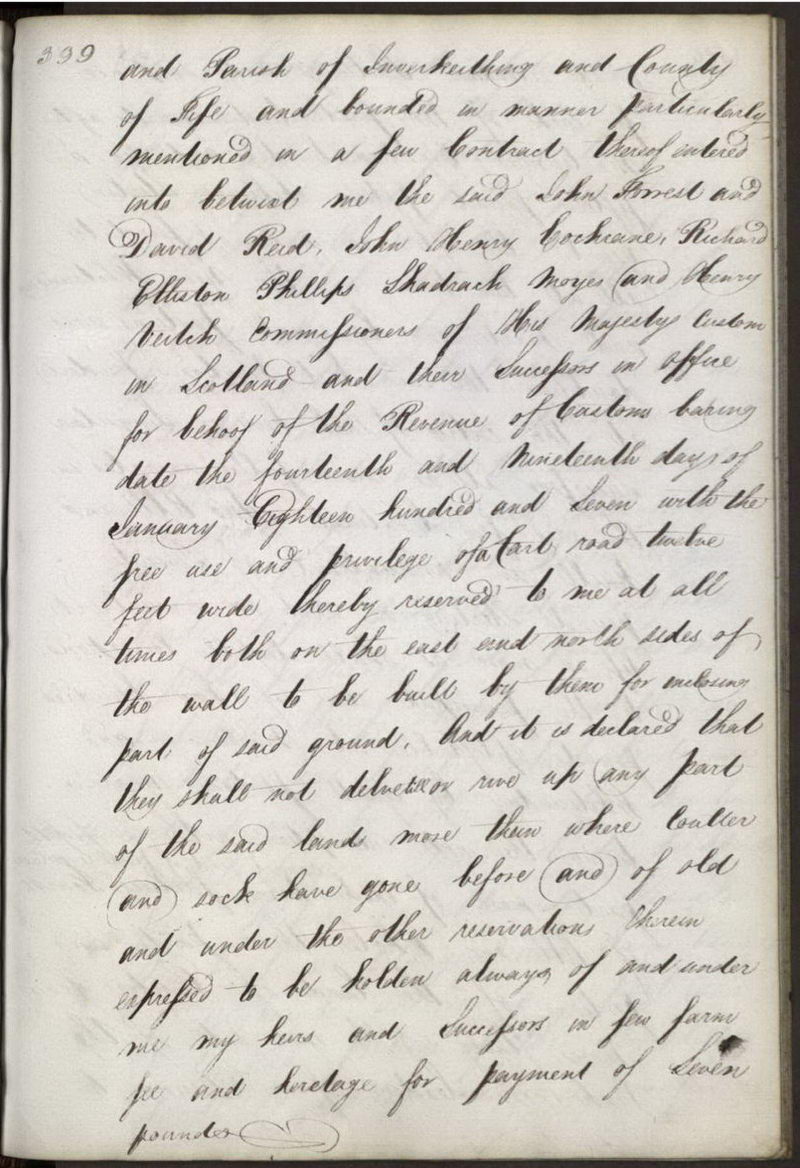 399
and Parish of Inverkeithing and County
of Fife and bounded in manner particularly
mentioned in a feu Contract thereof entered
into betwixt me the said John Forrest and
David Reid, John Henry Cochrane, Richard
Elliston Phillips Shadrach Moyes and Henry
Veitch Commissioners of His Majestys Custom
in Scotland and their Successors in office
for behoof of the Revenue of Customs baring
date the fourteenth and Nineteenth days of
January Eighteen hundred and Seven with the
free use and privilege of a Cart road twelve
feet wide thereby reserved to me at all
times both on the east and north sides of
the wall to be built by them for inclosing
part of said ground, And it is declared that
they shall not delve till or rive up any part
of the said lands more than where Coulter
and sock have gone before and of old
and under the other reservations therein
expressed to be holden always of and under
me my heirs and Successors in feu farm
fee and heretage for payment of Seven
pounds